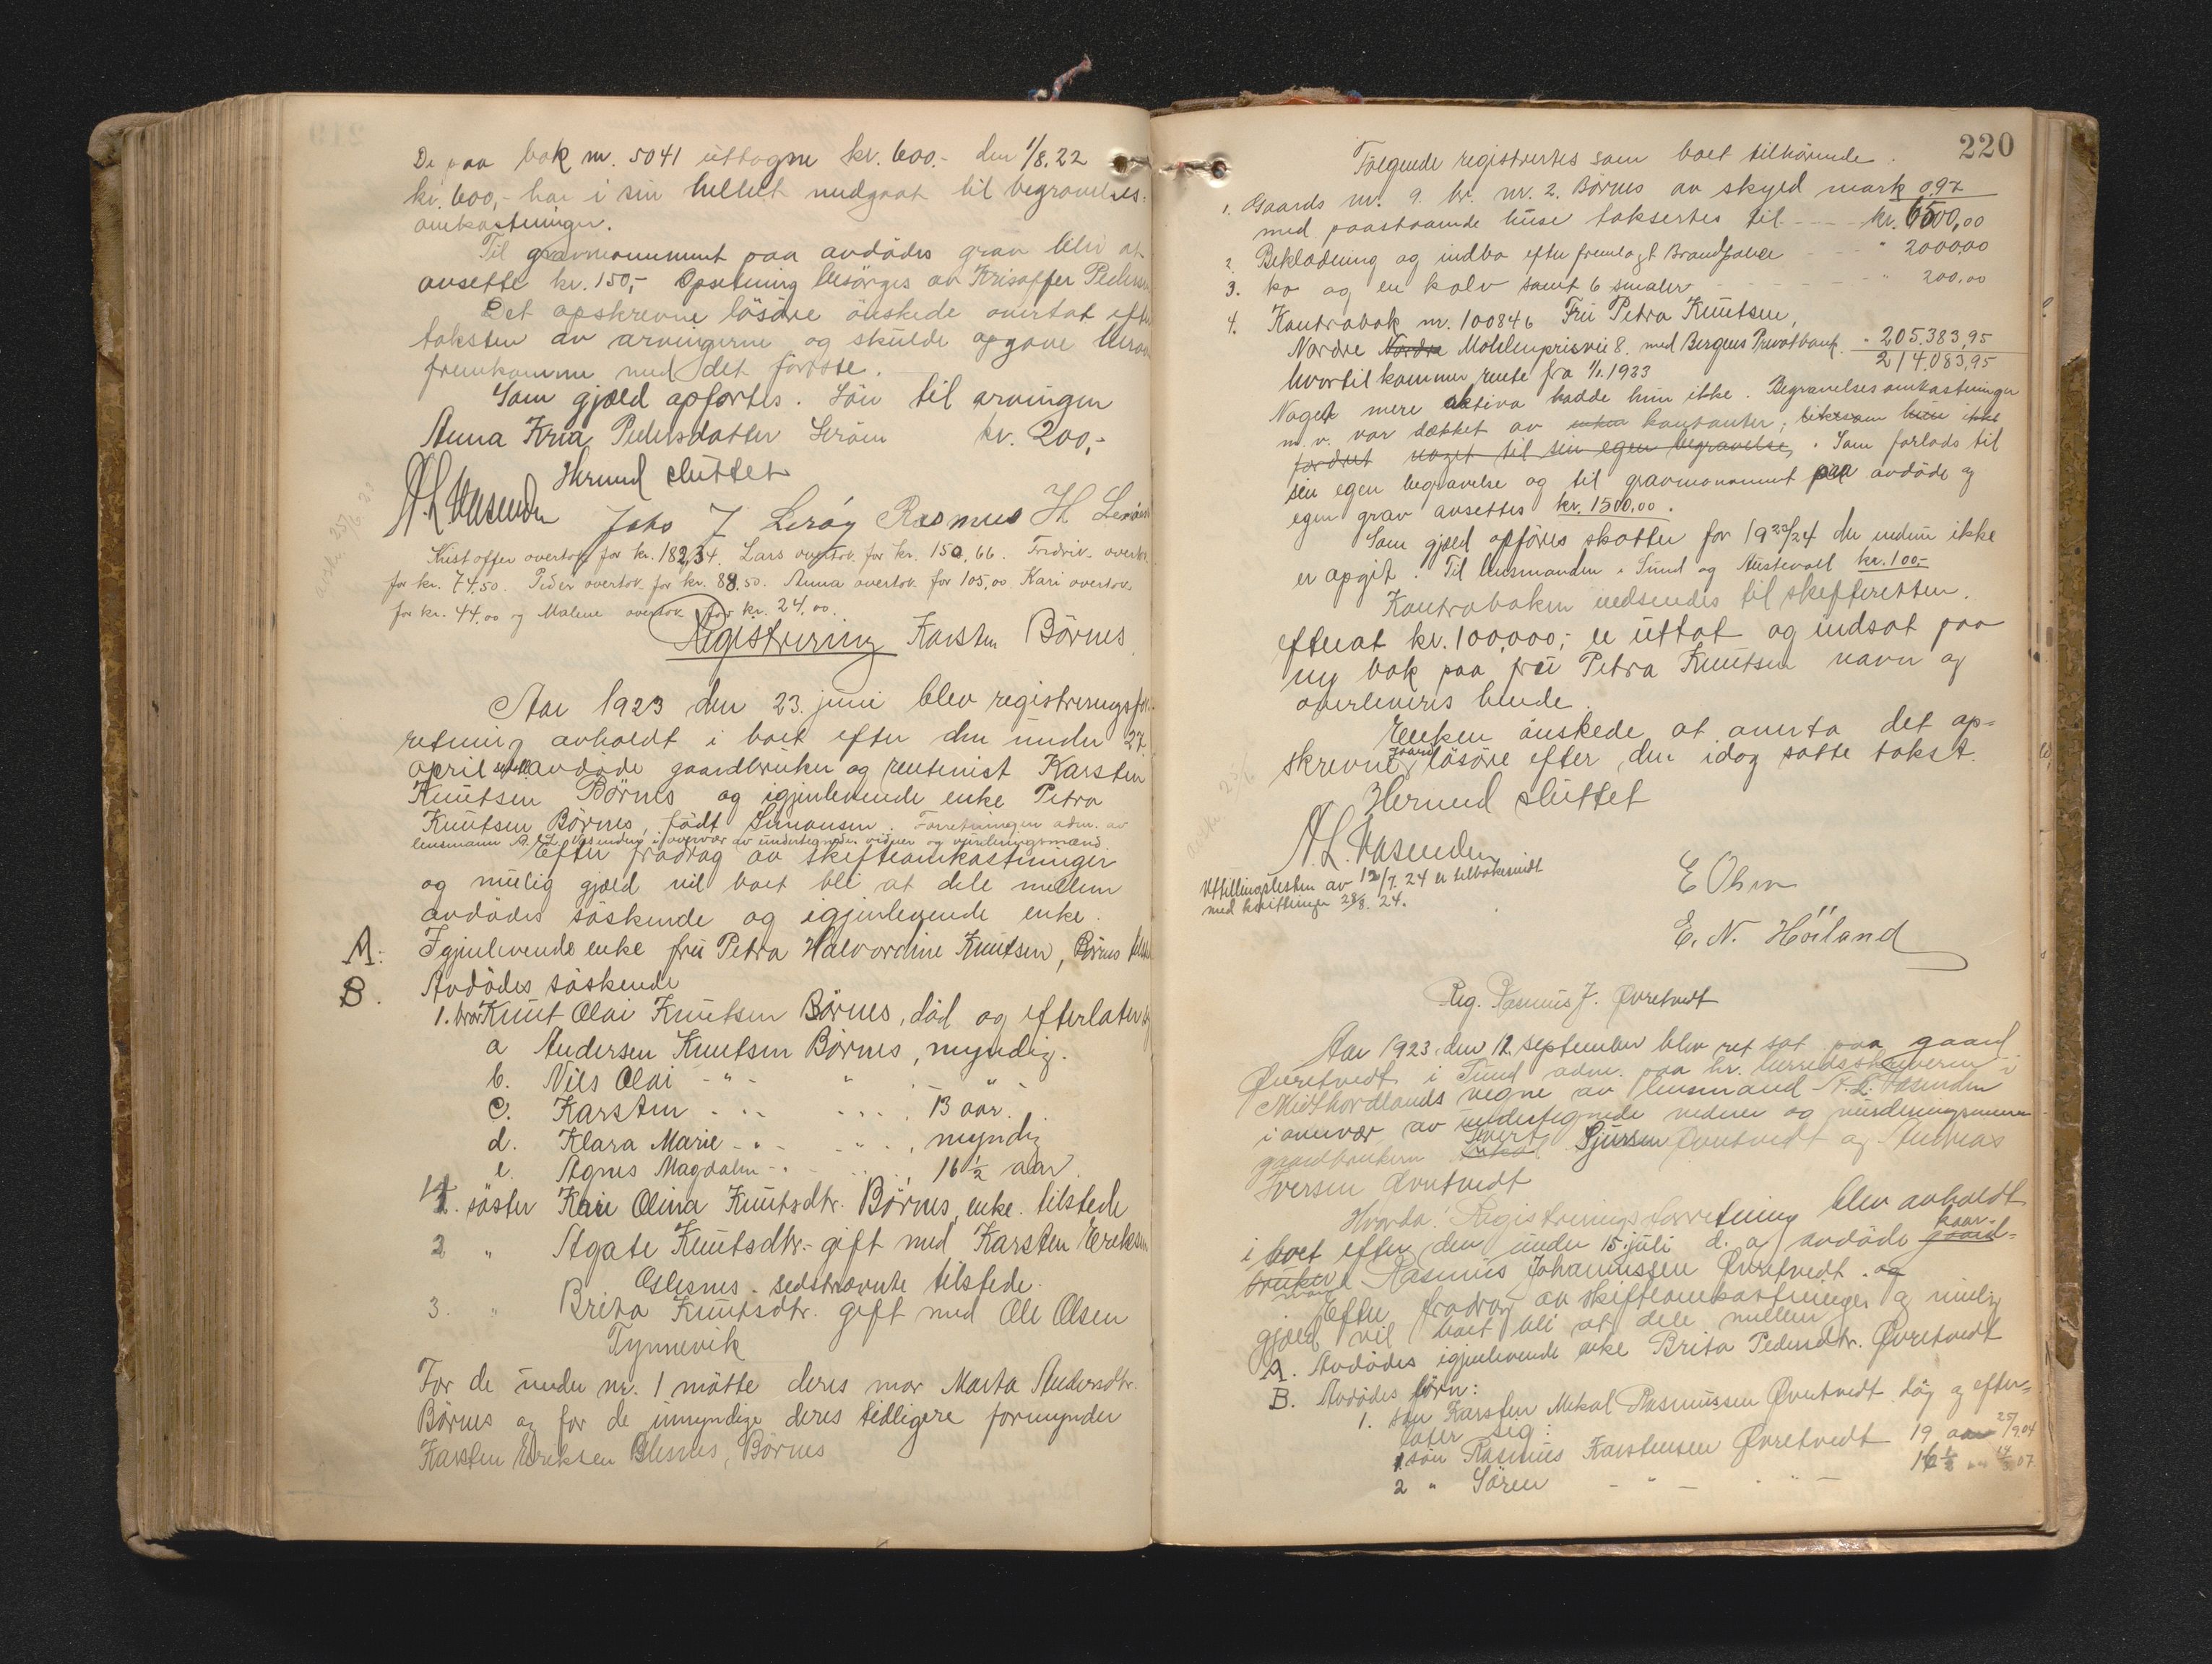 De paa bok nr. 5041 uttagne kr. 600.- den 1/8. 22
kr. 600,- har i sin helhet medgaat til begravelses-
omkostninger.
Til gravmonument paa avdødes grav blev at
avsette kr. 150,- Opsetning besörges av Krisoffer Pedersen
Det opskrevne lösöre önskede overtat efter
taksten av arvingerne og skulde opgave herom
fremkomme med det förste.
Som gjæld opførtes. Lön til arvingen
Anna Kria Pedersdatter Lerøen kr. 200,-
Hermed sluttet
A. L. Vasenden Joho J Leröy Rasmus H
Kristoffer overtok for kr. 182,34. Lars overtok for kr. 150,66. Fredrik overtok
for kr. 74.50. Peder overtok for kr. 88.50. Anna overtok for 105,00 Kari overtok
for kr. 44,00 og Malene overtok for kr. 24,00.
Registrering Karsten Börnes
Aar 1923 den 23. juni blev registreringsfor-
retning avholdt i boet efter den under 27.
april avdöde gaardbruker og rentenist Karsten
Knutsen Börnes og igjenlevende enke Petra
Knutsen Börnes, født Simonsen. Forretningen adm. av
lensmann A. L. Vasenden i overvær av undertegnede vidner og vurderingsmænd.
Efter fradrag av skifteomkostninger
og mulig gjæld vil boet bli at dele mellem
avdödes söskende og igjenlevende enke.
A. Igjenlevende enke fru Petra Halvordine Knutsen, Börnes
B. Avdödes söskende
1. bror Knut Olai Knutsen Börnes, död og efterlater
a Andersen Knutsen Börnes, myndig.
b. Nils Olai -"- " - " -
c. Karsten -"- -"- 13 aar.
d. Klara Marie -"- -"-, myndig
e. Agnes Magdalen -"- -"- 16 1/2 aar
1. söster Kari Olina Knutsdtr. Börnes, enke. tilstede
2 " Agate Knutsdtr.- gift med Karsten Eriksen
Oslesnes. tilstede.
3. " Brita Knutsdtr. gift med Ole Olsen
Tynnevik
For de under nr. 1 mötte deres mor Marta Andersdtr.
Börnes og for de umyndige deres tidligere formynder
Karsten Eriksen Börnes
220
Fölgende registrertes som boet tilhörende.
1. Gaards nr. 9. br. nr. 2. Börnes av skyld mark 0,97
med paastaaende huse taksertes til - - - kr. 6500,00
2. Beklædning og indbo efter fremlagt Brandpolice - - - " 2000,00
3. ko og en kalv samt 6 smaler - - - - - " 200,00
4. Kontrabok nr. 100846 Fru Petra Knutsen,
Nordre Nordre Möhlenprisvei 8. med Bergens Privatbank. " 205.383,95
hvortil kommer rente fra 1/1. 1923 214.083,95
Noget mere aktiva hadde hun ikke. Begravelsesomkostninger
m. v. var dækket av kontanter; hun ikke
fordret noget til sin egen begravelse. Som forlods til
sin egen begravelse og til gravmonument paa avdöde og
egen grav avsettes kr. 1500,00.
Som gjæld opföres skatter for 1923/24 der endnu ikke
er opgit. Til lensmanden i Sund og Austevoll kr. 100,-
Kontraboken nedsendes til skifteretten.
efterat kr. 100,000,- er uttat og indsat paa
ny bok paa fru Petra Knutsen navn og
overleveres hende.
Enken önskede at overta det op-
skrevne gaard lösöre efter den idag satte takst.
Hermed sluttet
A. L. Vasenden
Utlillingslisten av 12/7. 24 er tilbakesendt
med kvitteringer 28/8. 24.
E Olsen
E. N. Höiland
Reg. Rasmus J. Øvretvedt
Aar 1923, den 12. september blev ret sat paa gaard
Øvretvedt i Sund adm. paa hr. herredsskriveren i
Midthordlands vegne av lensmand A. L. Vasenden
i overvær av undertegnede vidner og vurderingsmenn
gaardbrukern Sivert Sjursen Øvretvedt og Andreas
Iversen Øvretvedt
Hvorda: Registreringsforretning blev avholdt
i boet efter den under 15. juli d. a. avdöde kaar- gaard-
bruker mand Rasmus Johannessen Øvretvedt. og
Efter fradrag av skifteomkostninger og mulig
gjæld vil boet bli at dele mellem
A. Avdödes igjenlevende enke Brita Pedersdtr. Øvretvedt
B. Avdödes børn:
1. sön Karsten Mikal Rasmussen Øvretvedt död og efter-
later sig:
1 sön Rasmus Karstensen Øvretvedt 19 aar 25/9.04
2 " Sören - " - " - 16 1/2 " 07